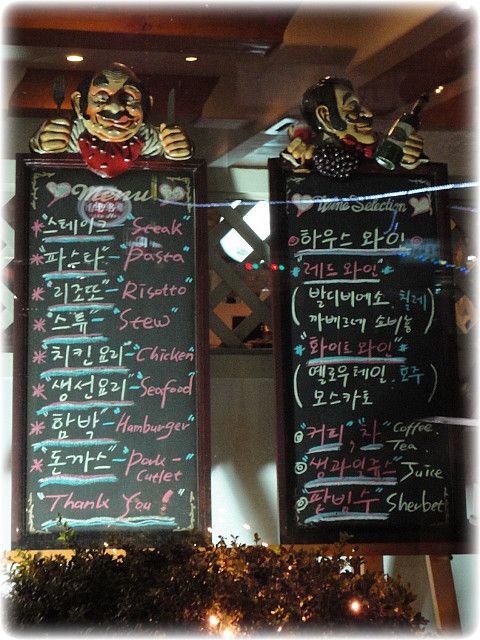 Menu
*"스테이크"-"Steak"
*"파스타"-"Pasta"
*"리조또"-"Risotto"
*"스튜"-"Stew"
*"치킨요리"-"Chicken"
*"생선요리"-"Seafood"
*"함박"-"Hamburger"
*"돈까스"-"Pork-Cutlet
"Thank You!"
Wine Selection
하우스 와인
*"레드 와인"*
(발디비에소 칠레
까베르네 소비뇽)
*"화이트 와인"*
(옐로우테일, 호주
모스카토)
"커피", 차" Coffee. Tea.
"생과일쥬스" Juice
"팥빙수" Sherbet